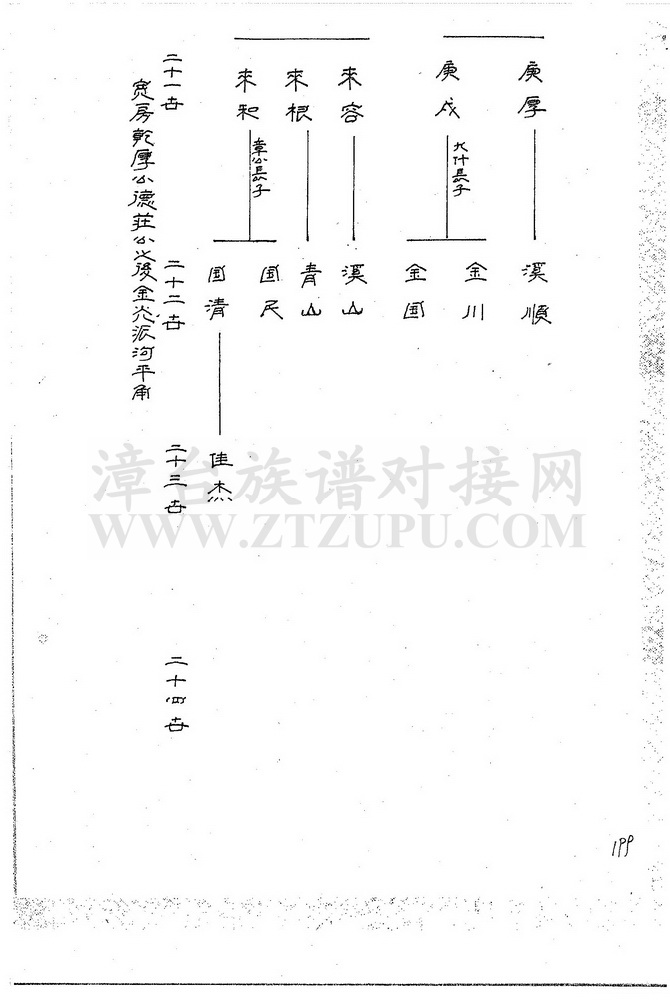 庚厚
溪順
庚戍
九什長子
金川
金国
來容
溪山
來根
青山
來和
章公長子
国民
国清
佳杰
二十一世
二十二世
二十三世
二十四世
寬房乾厚公德莊公之後金火派河平角
漳台族谱对接网
WWW.ZTZUPU.COM
199